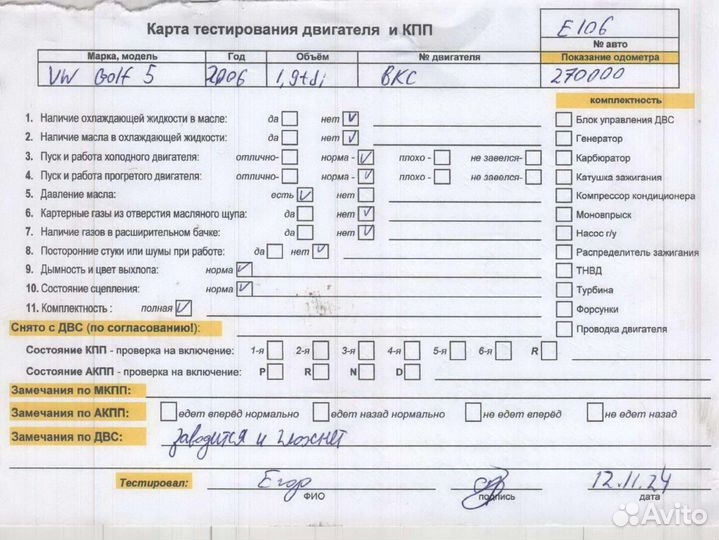 Карта тестирования двигателя и КПП
E106
№ авто
Марка, модель Год Объём № двигателя Показание одометра
VW Golf 5 2006 1,9tdi BKC 270000
комплектность
1. Наличие охлаждающей жидкости в масле: да нет Блок управления ДВС
2. Наличие масла в охлаждающей жидкости: да нет Генератор
3. Пуск и работа холодного двигателя: отлично- норма - плохо - не завелся- Карбюратор
4. Пуск и работа прогретого двигателя: отлично- норма - плохо - не завелся- Катушка зажигания
5. Давление масла: есть нет Компрессор кондиционера
6. Картерные газы из отверстия масляного щупа: да нет Моновпрыск
7. Наличие газов в расширительном бачке: да нет Насос г/у
8. Посторонние стуки или шумы при работе: да нет Распределитель зажигания
9. Дымность и цвет выхлопа: норма ТНВД
10. Состояние сцепления: норма Турбина
11. Комплектность : полная Форсунки
Снято с ДВС (по согласованию!): Проводка двигателя
Состояние КПП - проверка на включение: 1-я 2-я 3-я 4-я 5-я 6-я R
Состояние АКПП - проверка на включение: P R N D
Замечания по МКПП:
Замечания по АКПП: едет вперёд нормально едет назад нормально не едет вперёд не едет назад
Замечания по ДВС: заводится и глохнет
Тестировал: Егор 12.11.24
ФИО подпись дата
Avito